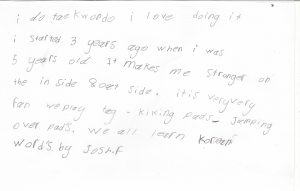 i do taekwondo i love doing it
i started 3 years ago when i was
5 years old It makes me stronger on
the in side & out side. it is very very
fun we play tag - kiking pads - jumping
over pads. we all learn korean
words. by Josh.f